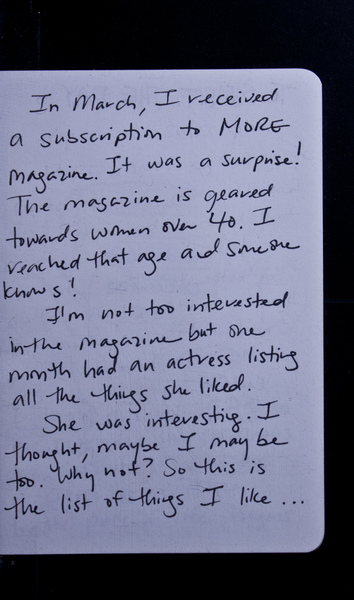 In March, I received
a subscription to MORE
magazine. It was a surprise!
The magazine is geared
towards women over 40. I
reached that age and someone
knows!
I'm not too interested
in the magazine but one
month had an actress listing
all the things she liked.
She was interesting. I
thought, maybe I may be
too. Why not? So this is
the list of things I like ...